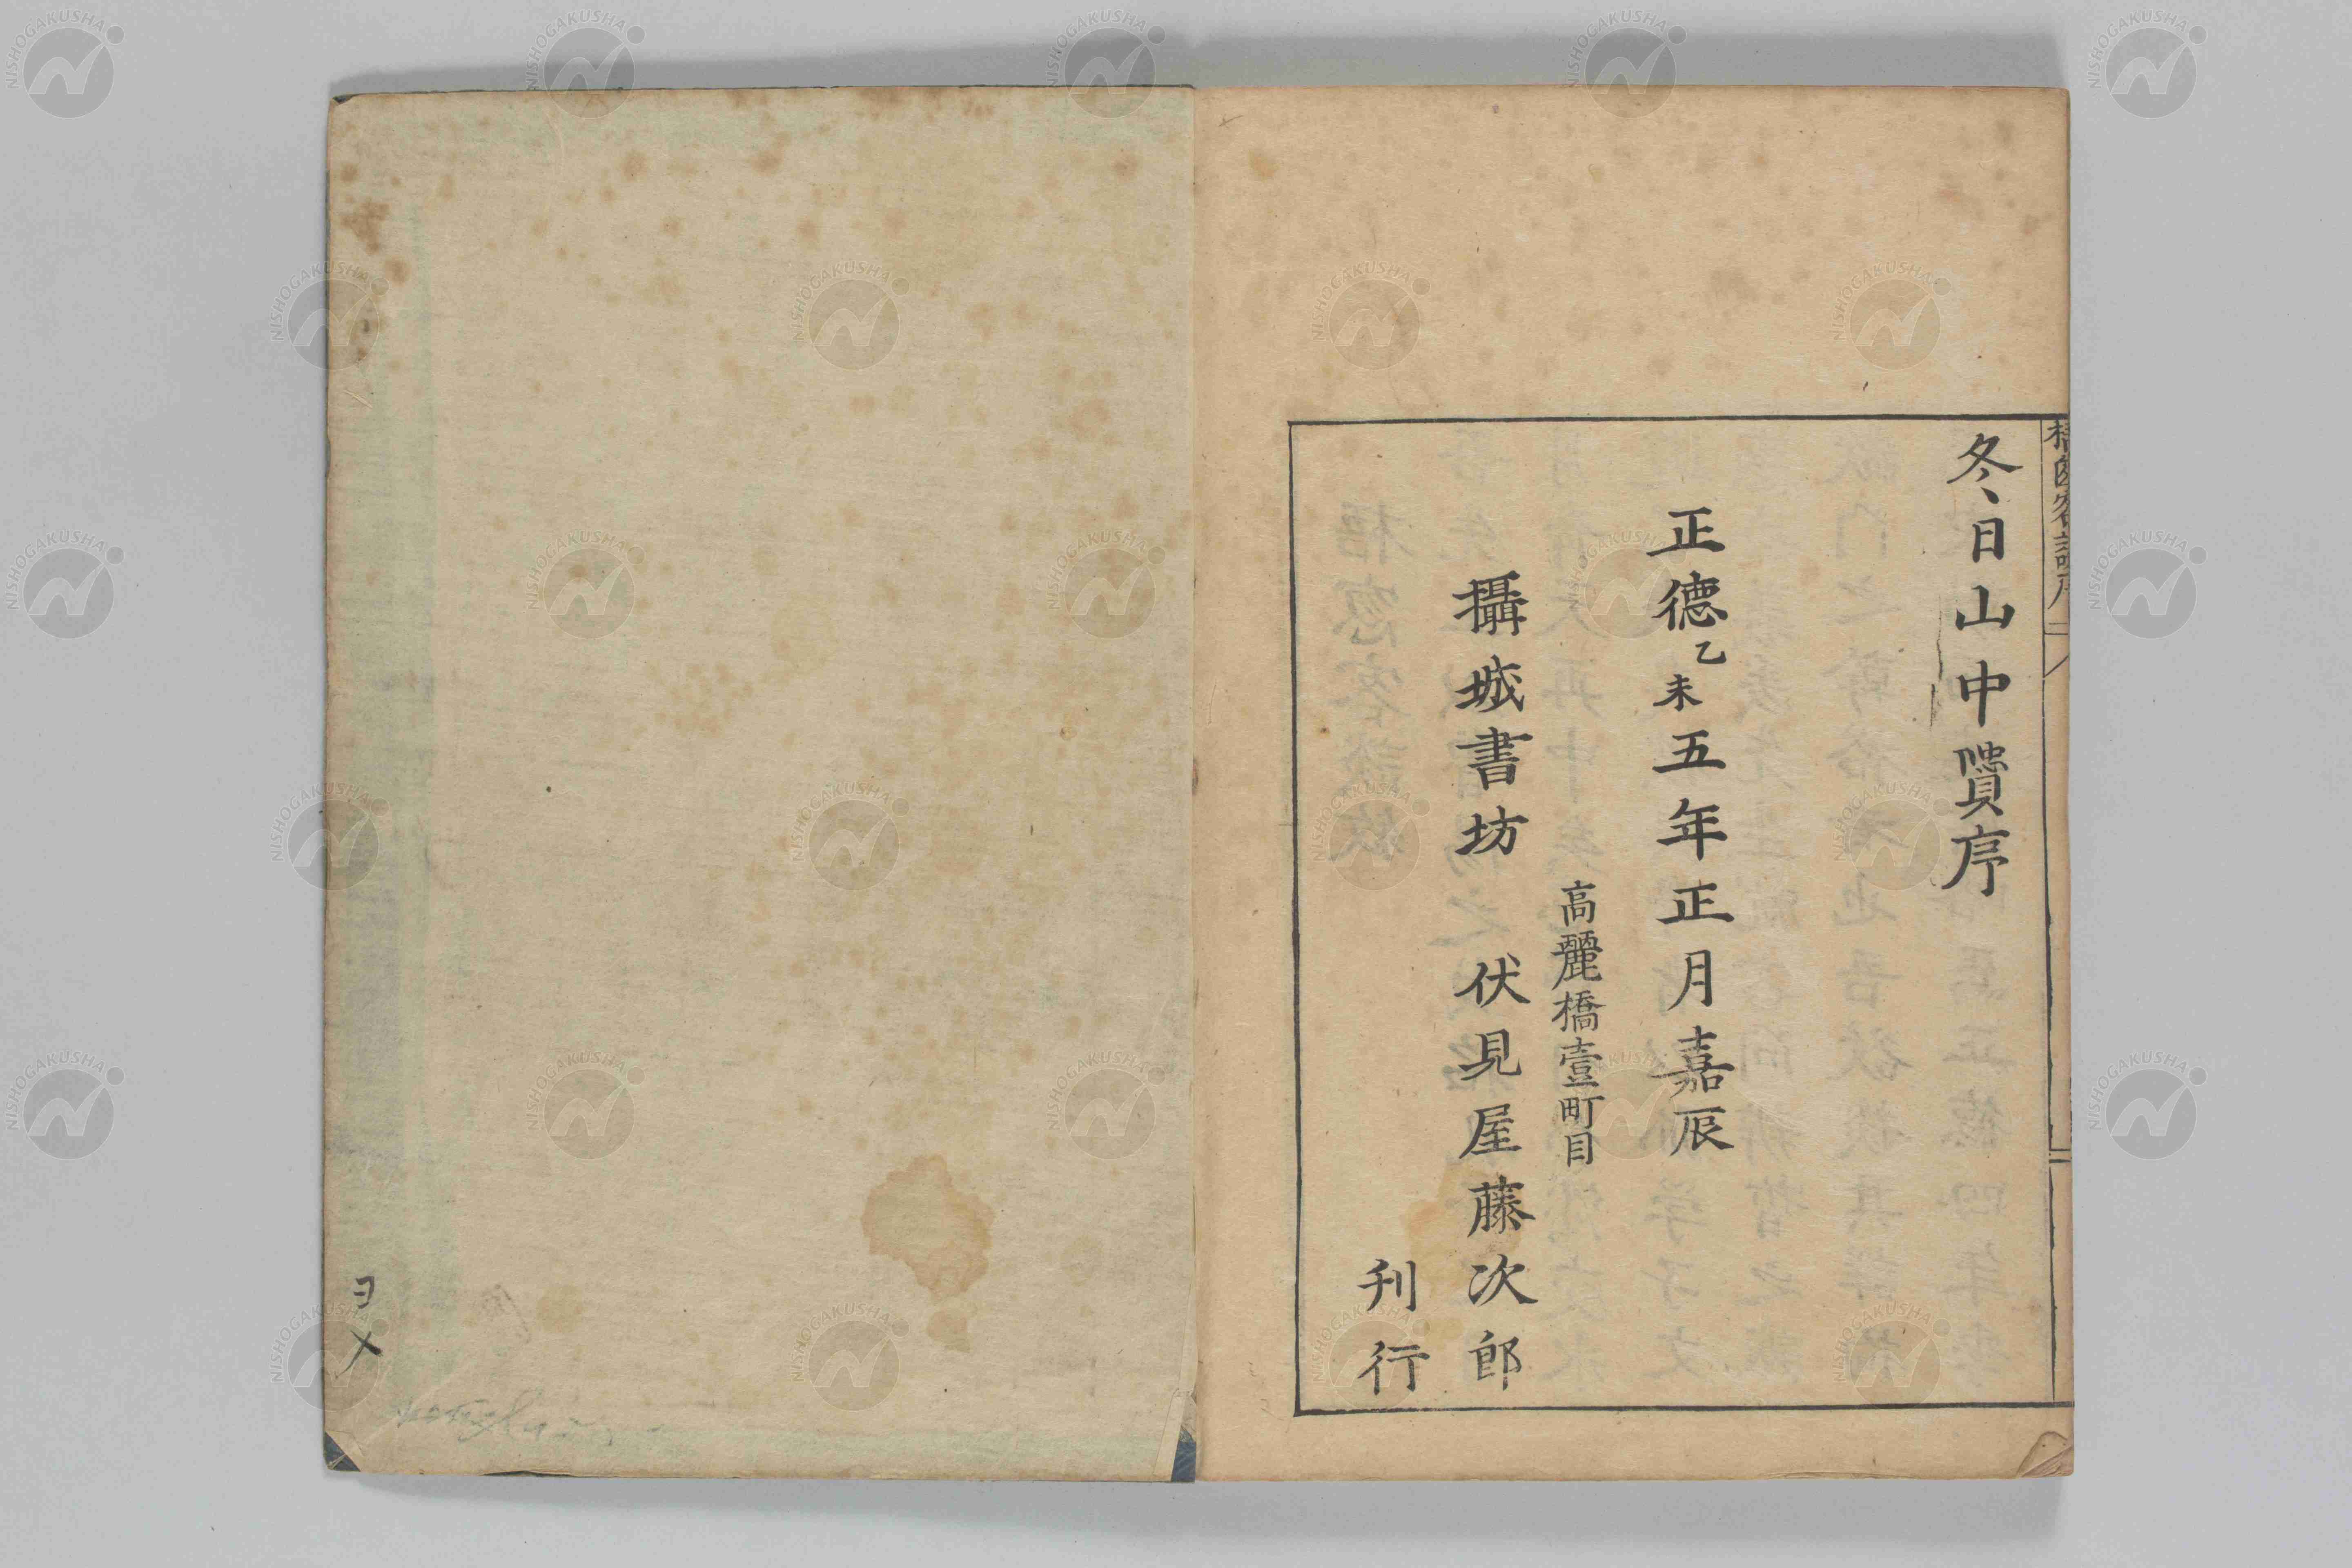 冬日山中隤序
正德乙未五年正月嘉辰
高麗橋壹町目
攝城書坊 伏見屋藤次郎
刊行
ヨメ
NISHOGAKUSHA